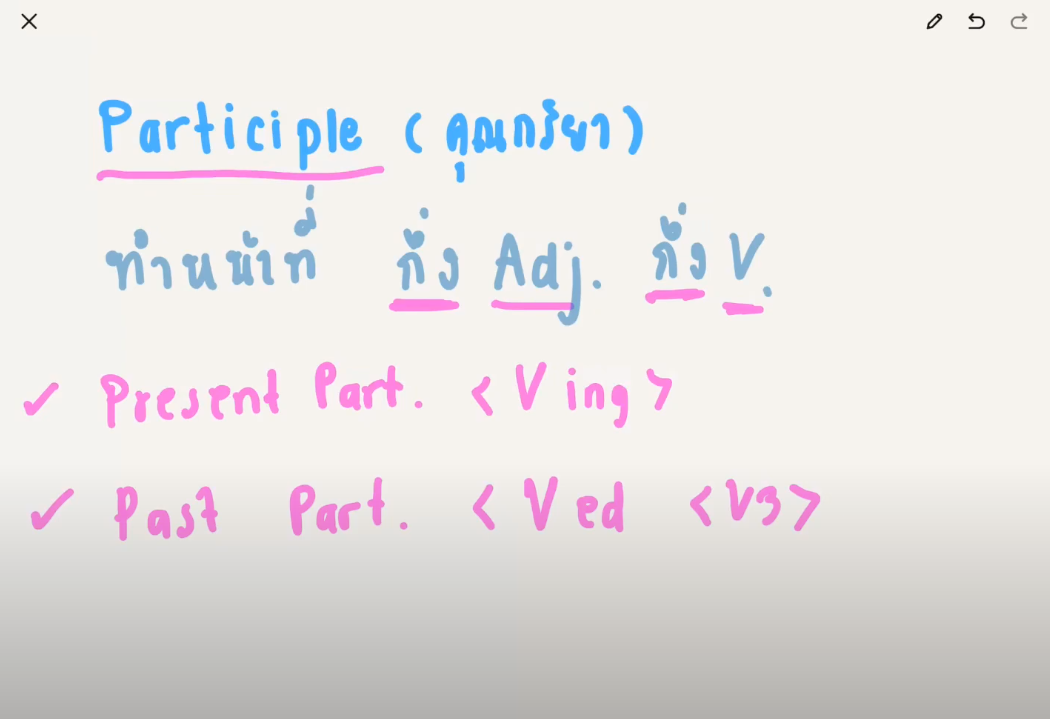 Participle (คุณกริยา)
ทำหน้าที่ ทั้ง Adj. ทั้ง V.
✓ Present Part. <Ving>
✓ Past Part. <Ved <V3>